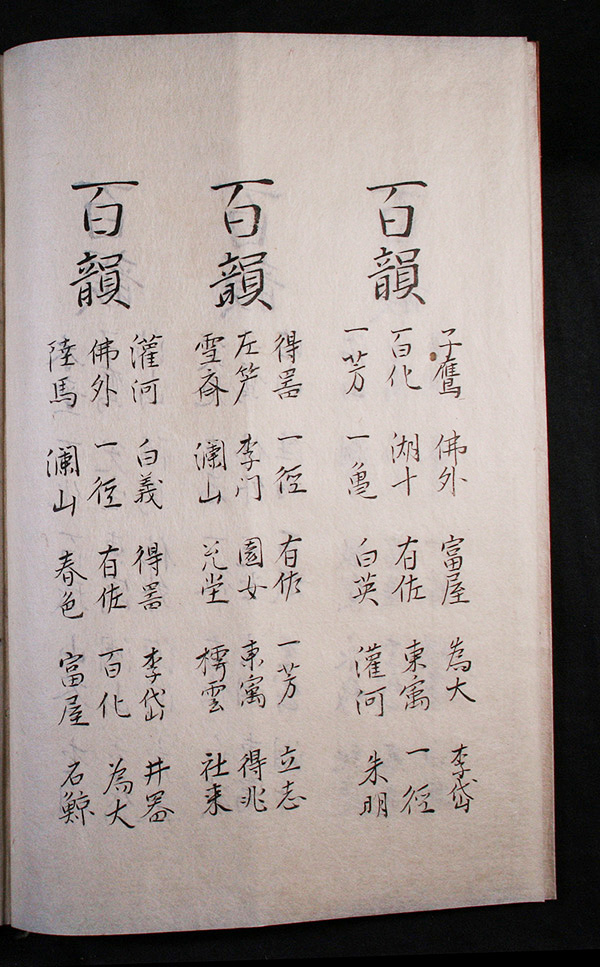 百韻
子鷹 佛外 富屋 為大 李岱
百化 湖十 有佐 東寓 一徑
一芳 一亀 白英 灌河 朱明
百韻
得器 一徑 有佐 一芳 立志
左笁 李门 園女 東寓 得兆
雪斎 瀾山 樗雲 社来
百韻
灌河 白義 得器 李岱 井器
佛外 一徑 有佐 百化 為大
陸馬 瀾山 春色 富屋 石鯨